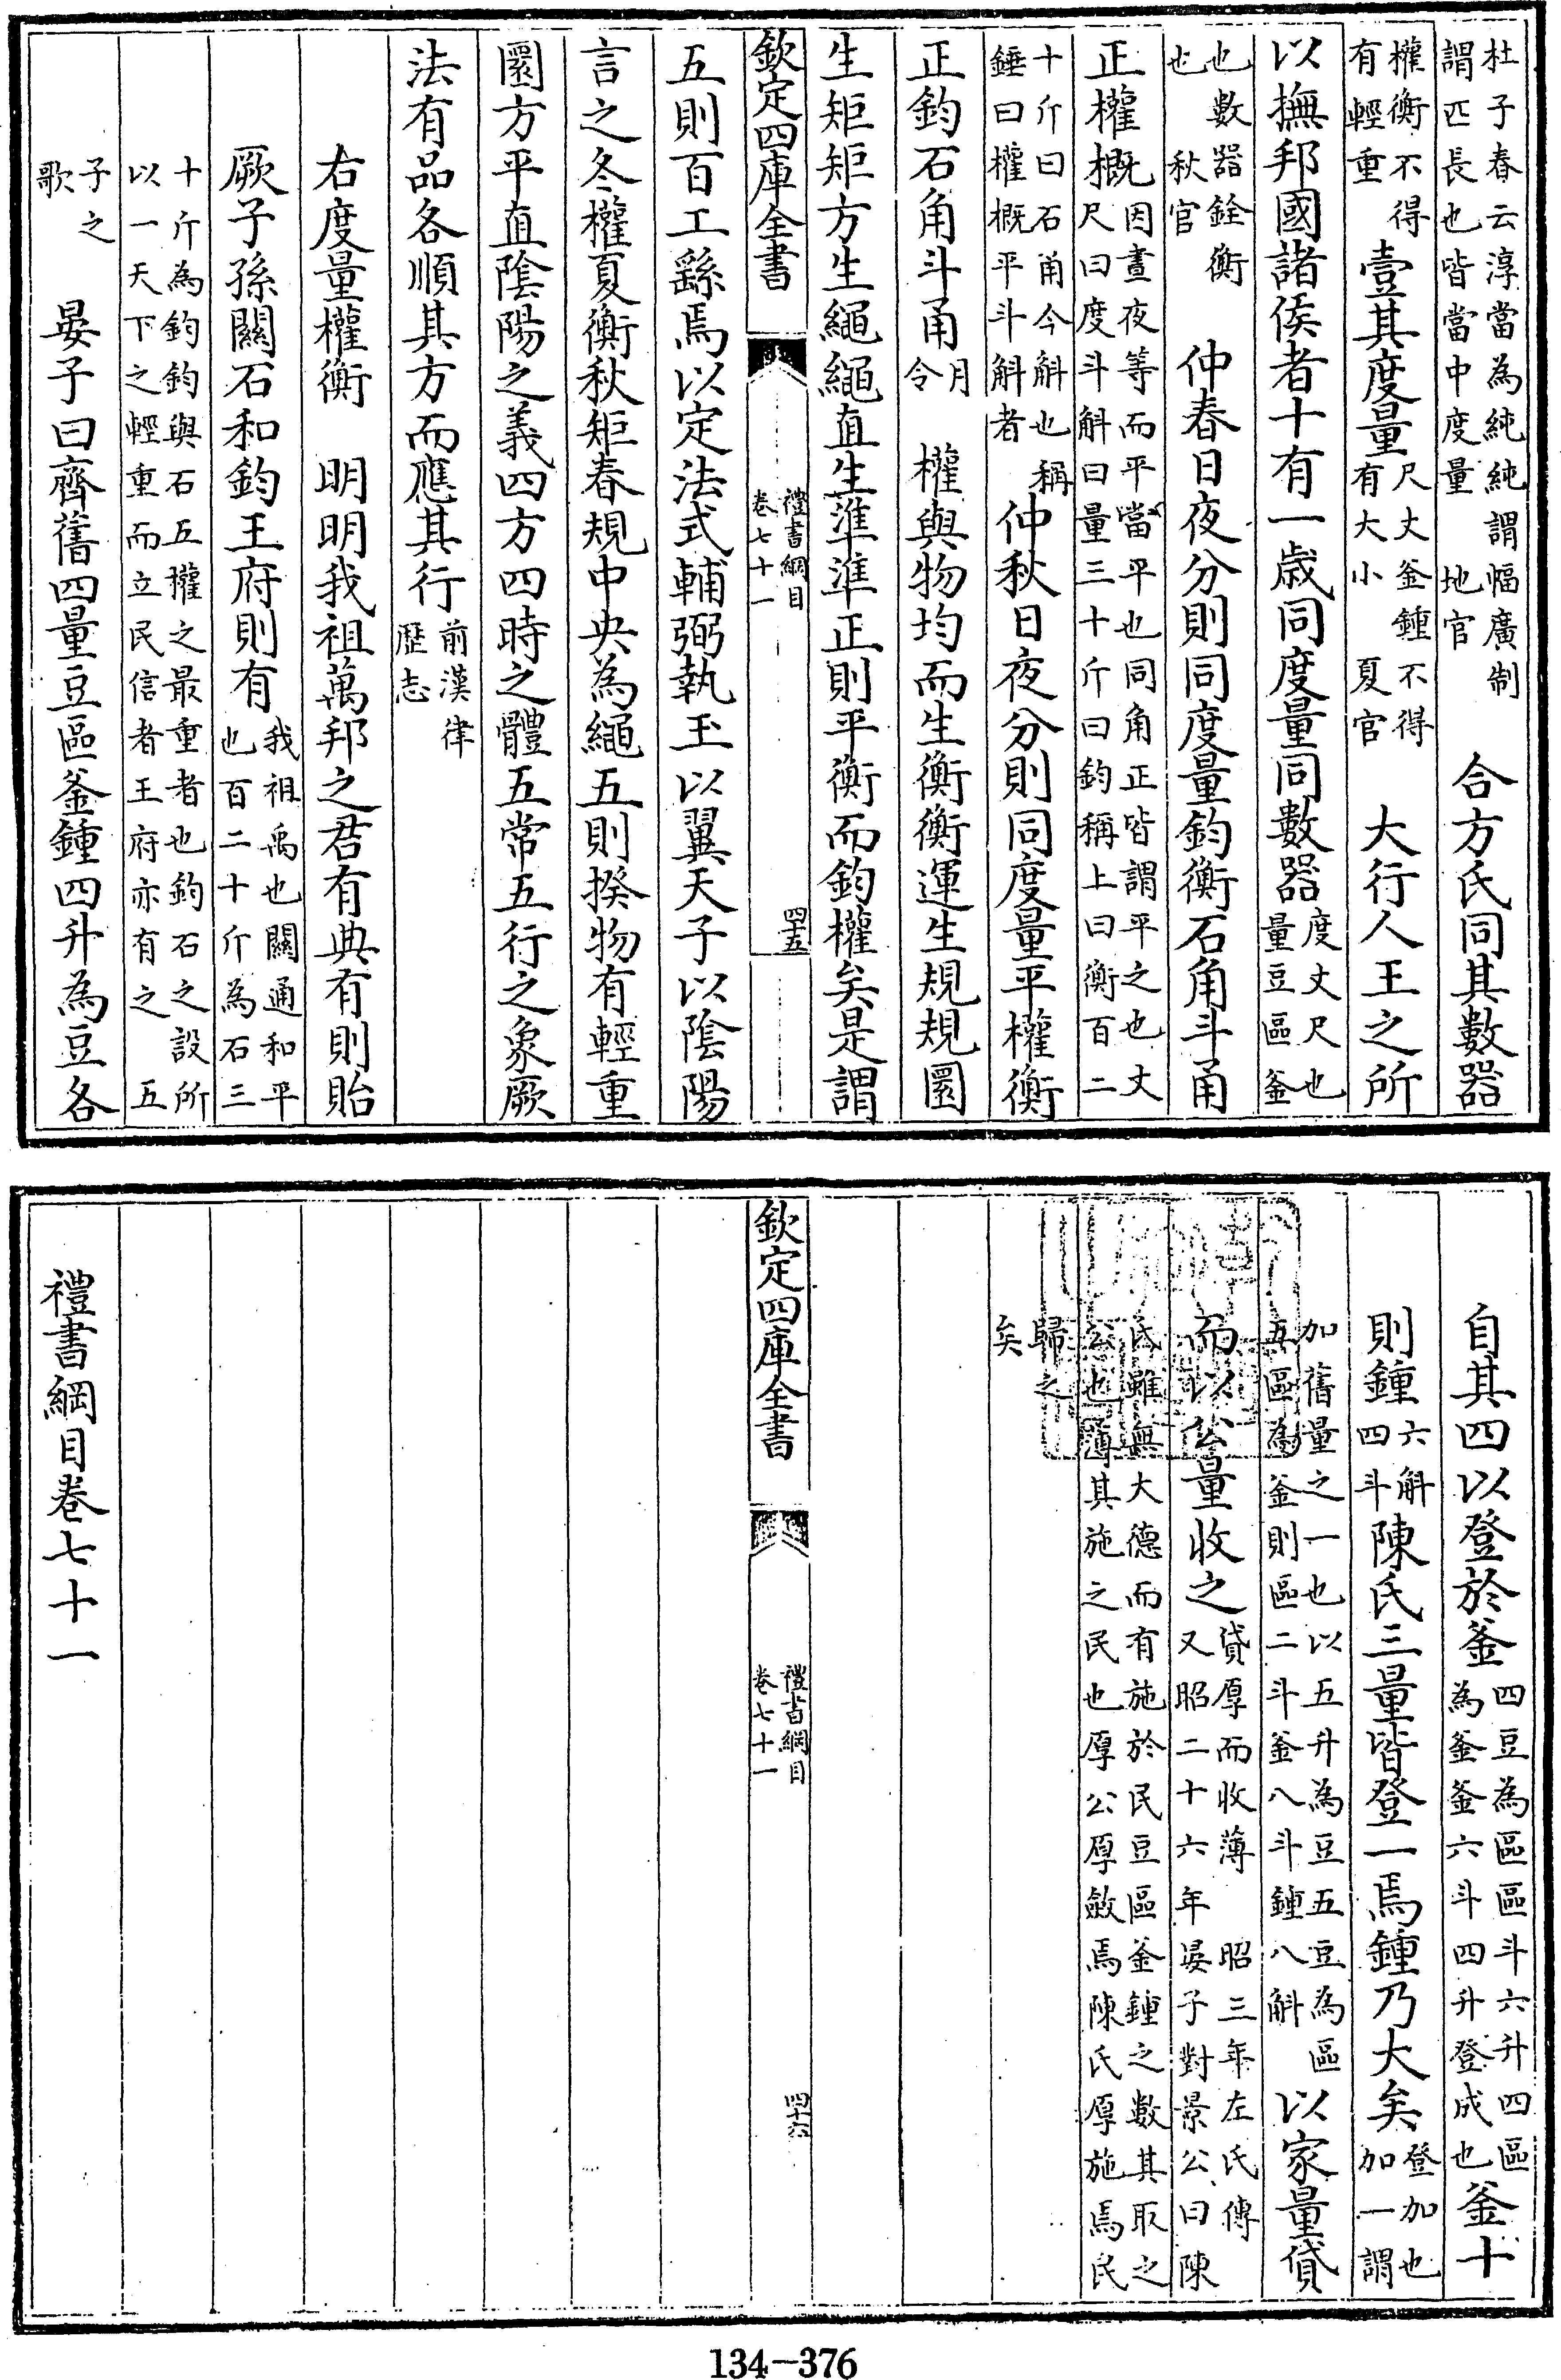 杜子春云淳當為純純謂幅廣制謂匹長也皆當中度量 地官 合方氏同其數器
權衡不得有輕重 壹其度量 尺丈釜鍾不得有大小 夏官 大行人王之所
以撫邦國諸侯者十有一歲同度量同數器 度丈尺也量豆區釜
也數器銓衡也 秋官 仲春日夜分則同度量鈞衡石角斗甬
正權概 因晝夜等而平當平也同角正皆謂平之也丈尺曰度斗斛曰量三十斤曰鈞稱上曰衡百二
十斤曰石甬今斛也稱錘曰權概平斗斛者 仲秋日夜分則同度量平權衡
正鈞石角斗甬 月令 權與物均而生衡衡運生規規圜
生矩矩方生繩繩直生準準正則平衡而鈞權矣是謂
欽定四庫全書 禮書綱目 卷七十一 四十五
五則百工繇焉以定法式輔弼執玉以翼天子以陰陽
言之冬權夏衡秋矩春規中央為繩五則揆物有輕重
圜方平直陰陽之義四方四時之體五常五行之象厥
法有品各順其方而應其行 前漢律歷志
右度量權衡 明明我祖萬邦之君有典有則貽
厥子孫關石和鈞王府則有 我祖禹也關通和平也百二十斤為石三
十斤為鈞鈞與石五權之最重者也鈞石之設所以一天下之輕重而立民信者王府亦有之 五
子之歌 晏子曰齊舊四量豆區釜鍾四升為豆各
自其四以登於釜 四豆為區區斗六升四區為釜釜六斗四升登成也 釜十
則鍾 六斛四斗 陳氏三量皆登一焉鍾乃大矣 登加也加一謂
加舊量之一也以五升為豆五豆為區五區為釜則區二斗釜八斗鍾八斛 以家量貸
而以公量收之 貸厚而收薄 昭三年左氏傳 又昭二十六年晏子對景公曰陳
氏雖無大德而有施於民豆區釜鍾之數其取之公也薄其施之民也厚公厚斂焉陳氏厚施焉民
歸之矣
欽定四庫全書 禮書綱目 卷七十一 四十六
禮書綱目卷七十一
134-376